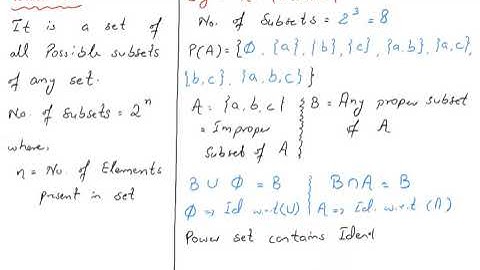 It is a set of
all Possible subsets
of any set.
No. of Subsets = 2ⁿ
where,
n = No. of Elements
present in set
No. of Subsets = 2³ = 8
P(A) = {∅, {a}, {b}, {c}, {a,b}, {a,c},
{b,c}, {a,b,c}}
A = {a,b,c}
= Improper
Subset of A
B = Any proper subset
of A
B ∪ ∅ = B
B ∩ A = B
∅ => Id w.r.t (∪)
A => Id. w.r.t (∩)
Power set contains Iden